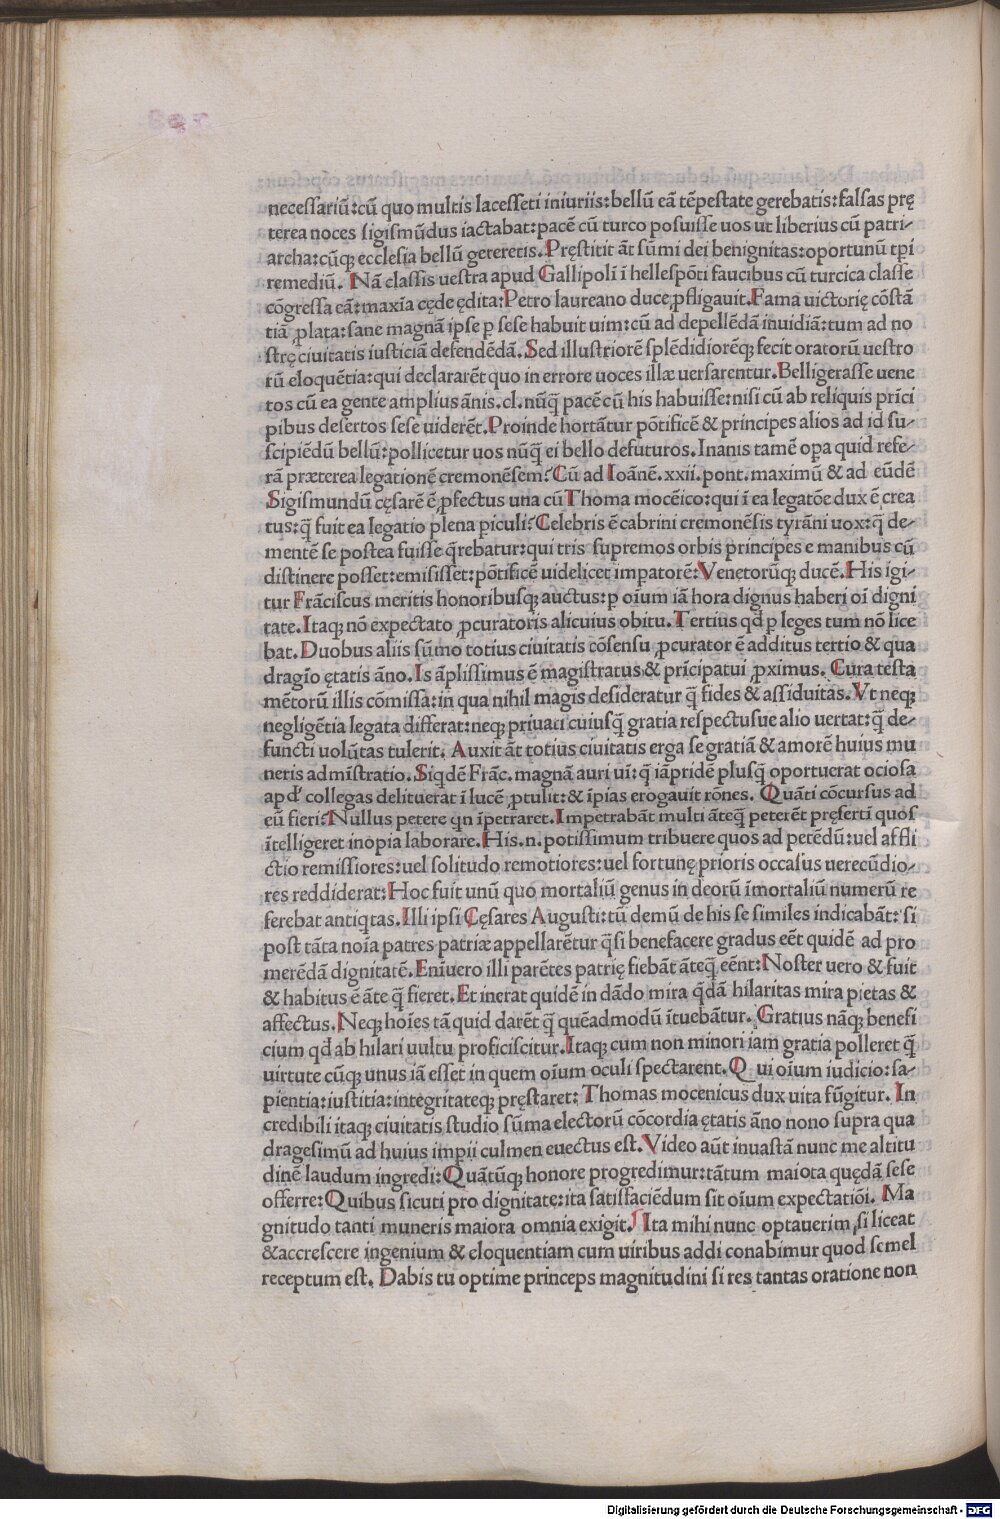 necessariū:cū quo multis lacesseti iniuriis:bellū eā tēpestate gerebatis:falsas prę
terea noces sigismūdus iactabat:pacē cū turco posuisse uos ut liberius cū patri-
archa:cūq; ecclesia bellū gereretis.Pręstitit āt sūmi dei benignitas:oportunū tpi
remediū. Nā classis uestra apud Gallipolī ī hellespōti faucibus cū turcica classe
cōgressa eā:maxīa cęde ędita:Petro laureano duce ꝓfligauit.Fama uictorię cōstā
tiā ꝓlata:sane magnā ipse p sese habuit uim:cū ad depellēdā inuidiā:tum ad no
strę ciuitatis iusticiā defendēdā.Sed illustriorē splēdidiorēq; fecit oratorū uestro
rū eloquētia:qui declararēt quo in errore uoces illæ uersarentur.Belligerasse uene
tos cū ea gente amplius ānis.cl.nūq̄ pacē cū his habuisse:nisi cū ab reliquis prīci
pibus desertos sese uiderēt.Proinde hortātur pōtificē & principes alios ad id su-
scipiēdū bellū:pollicetur uos nūq̄ ei bello defuturos.Inanis tamē opa quid refe-
rā præterea legationē cremonēsem?Cū ad Ioānē.xxii.pont.maximū & ad eūdē
Sigismundū cęsarē ē ꝓfectus una cū Thoma mocēico:qui ī ea legatōe dux ē crea
tus:q̄ fuit ea legatio plena piculi?Celebris ē cabrini cremonēsis tyrāni uox:q̄ de-
mentē se postea fuisse q̄rebatur:qui tris supremos orbis principes e manibus cū
distinere posset:emisisset:pōtificē uidelicet impatorē:Venetorūq; ducē.His igi-
tur Frāciscus meritis honoribusq; auctus:p oīum iā hora dignus haberi oī digni
tate.Itaq; nō expectato ꝓcuratoris alicuius obitu.Tertius qd p leges tum nō lice
bat.Duobus aliis sūmo totius ciuitatis cōsensu ꝓcurator ē additus tertio & qua
dragīo ętatis āno.Is āplissimus ē magistratus & prīcipatui ꝓximus. Cura testa
mētorū illis cōmissa:in qua nihil magis desideratur q̄ fides & assiduitas.Vt neq;
negligētia legata differat:neq; priuati cuiusq̄ gratia respectusue alio uertat:q̄ de-
functi uolūtas tulerit. Auxit āt totius ciuitatis erga se gratiā & amorē huius mu
neris admīstratio.Siqdē Frāc.magnā auri uī:q̄ iāpridē plusq̄ oportuerat ociosa
apd' collegas delituerat ī lucē ꝓtulit:& īpias erogauit rōnes. Quāti cōcursus ad
eū fieri?Nullus petere qn īpetraret.Impetrabāt multi āteq̄ peterēt pręsertī quos
ītelligeret inopia laborare.His.n.potissimum tribuere quos ad petēdū:uel affli
ctio remissiores:uel solitudo remotiores:uel fortunę prioris occasus uerecūdio-
res reddiderat:Hoc fuit unū quo mortaliū genus in deorū īmortaliū numerū re
ferebat antiqtas.Illi ipsi Cęsares Augusti:tū demū de his se similes indicabāt:si
post tāta noīa patres patriæ appellarētur q̄si benefacere gradus eēt quidē ad pro
merēdā dignitatē.Enīuero illi parētes patrię fiebāt āteq̄ eēnt:Noster uero & fuit
& habitus ē āte q̄ fieret.Et inerat quidē in dādo mira q̄dā hilaritas mira pietas &
affectus.Neq; hoīes tā quid darēt q̄ quēadmodū ītuebātur. Gratius nāq; benefi
cium qd ab hilari uultu proficiscitur.Itaq; cum non minori iam gratia polleret q̄
uirtute cūq; unus iā esset in quem oīum oculi spectarent.Q ui oīum iudicio:sa-
pientia:iustitia:integritateq; pręstaret: Thomas mocenicus dux uita fūgitur. In
credibili itaq; ciuitatis studio sūma electorū cōcordia ętatis āno nono supra qua
dragesimū ad huius impii culmen euectus est.Video aūt inuastā nunc me altitu
dinē laudum ingredi:Quātūq; honore progredimur:tātum maiora quędā sese
offerre:Quibus sicuti pro dignitate:ita satisfaciēdum sit oīum expectatiōi. Ma
gnitudo tanti muneris maiora omnia exigit. Ita mihi nunc optauerim, si liceat
&accrescere ingenium & eloquentiam cum uiribus addi conabimur quod semel
receptum est. Dabis tu optime princeps magnitudini si res tantas oratione non
Digitalisierung gefördert durch die Deutsche Forschungsgemeinschaft - DFG